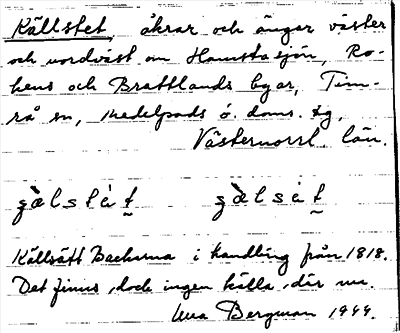 Källstet, åkrar och ängar väster
och nordväst om Hamstasjön, Ro-
kens och Brattlands byar, Tim-
rå sn, Medelpads ö. doms. tg,
Västernorrl. län.
Källsätt Backarna i handling från 1818.
Det finns dock ingen källa där nu.
Bergman 1944.